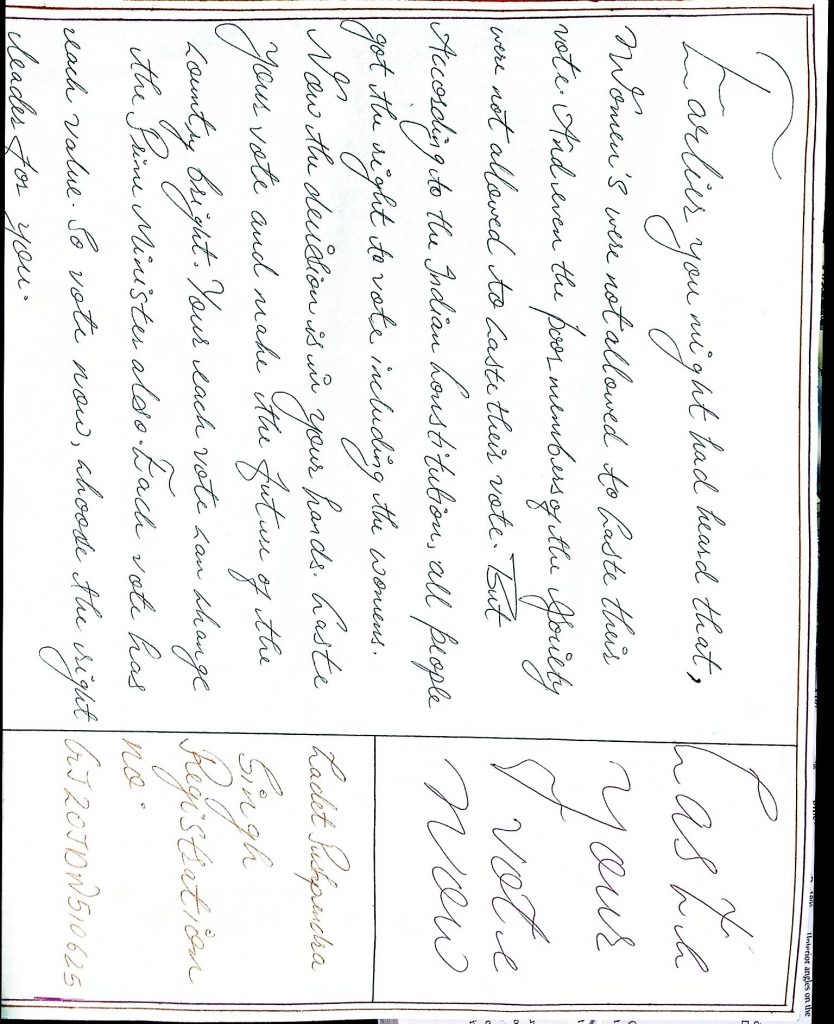 Earlier you might had heard that,
Women's were not allowed to Caste their
vote. And even the poor members of the Society
were not allowed to Caste their vote. But
According to the Indian Constitution, all people
got the right to vote including the womens.
Now the decision is in your hands. Caste
your vote and make the future of the
country bright. Your each vote can change
the Prime Minister also. Each vote has
each value. So vote now, choose the right
leader for you.
Caste
your
vote
Now
Cadet Pushpendra
Singh
Registration
no.
GJ20JDW510625
Interior angles on the